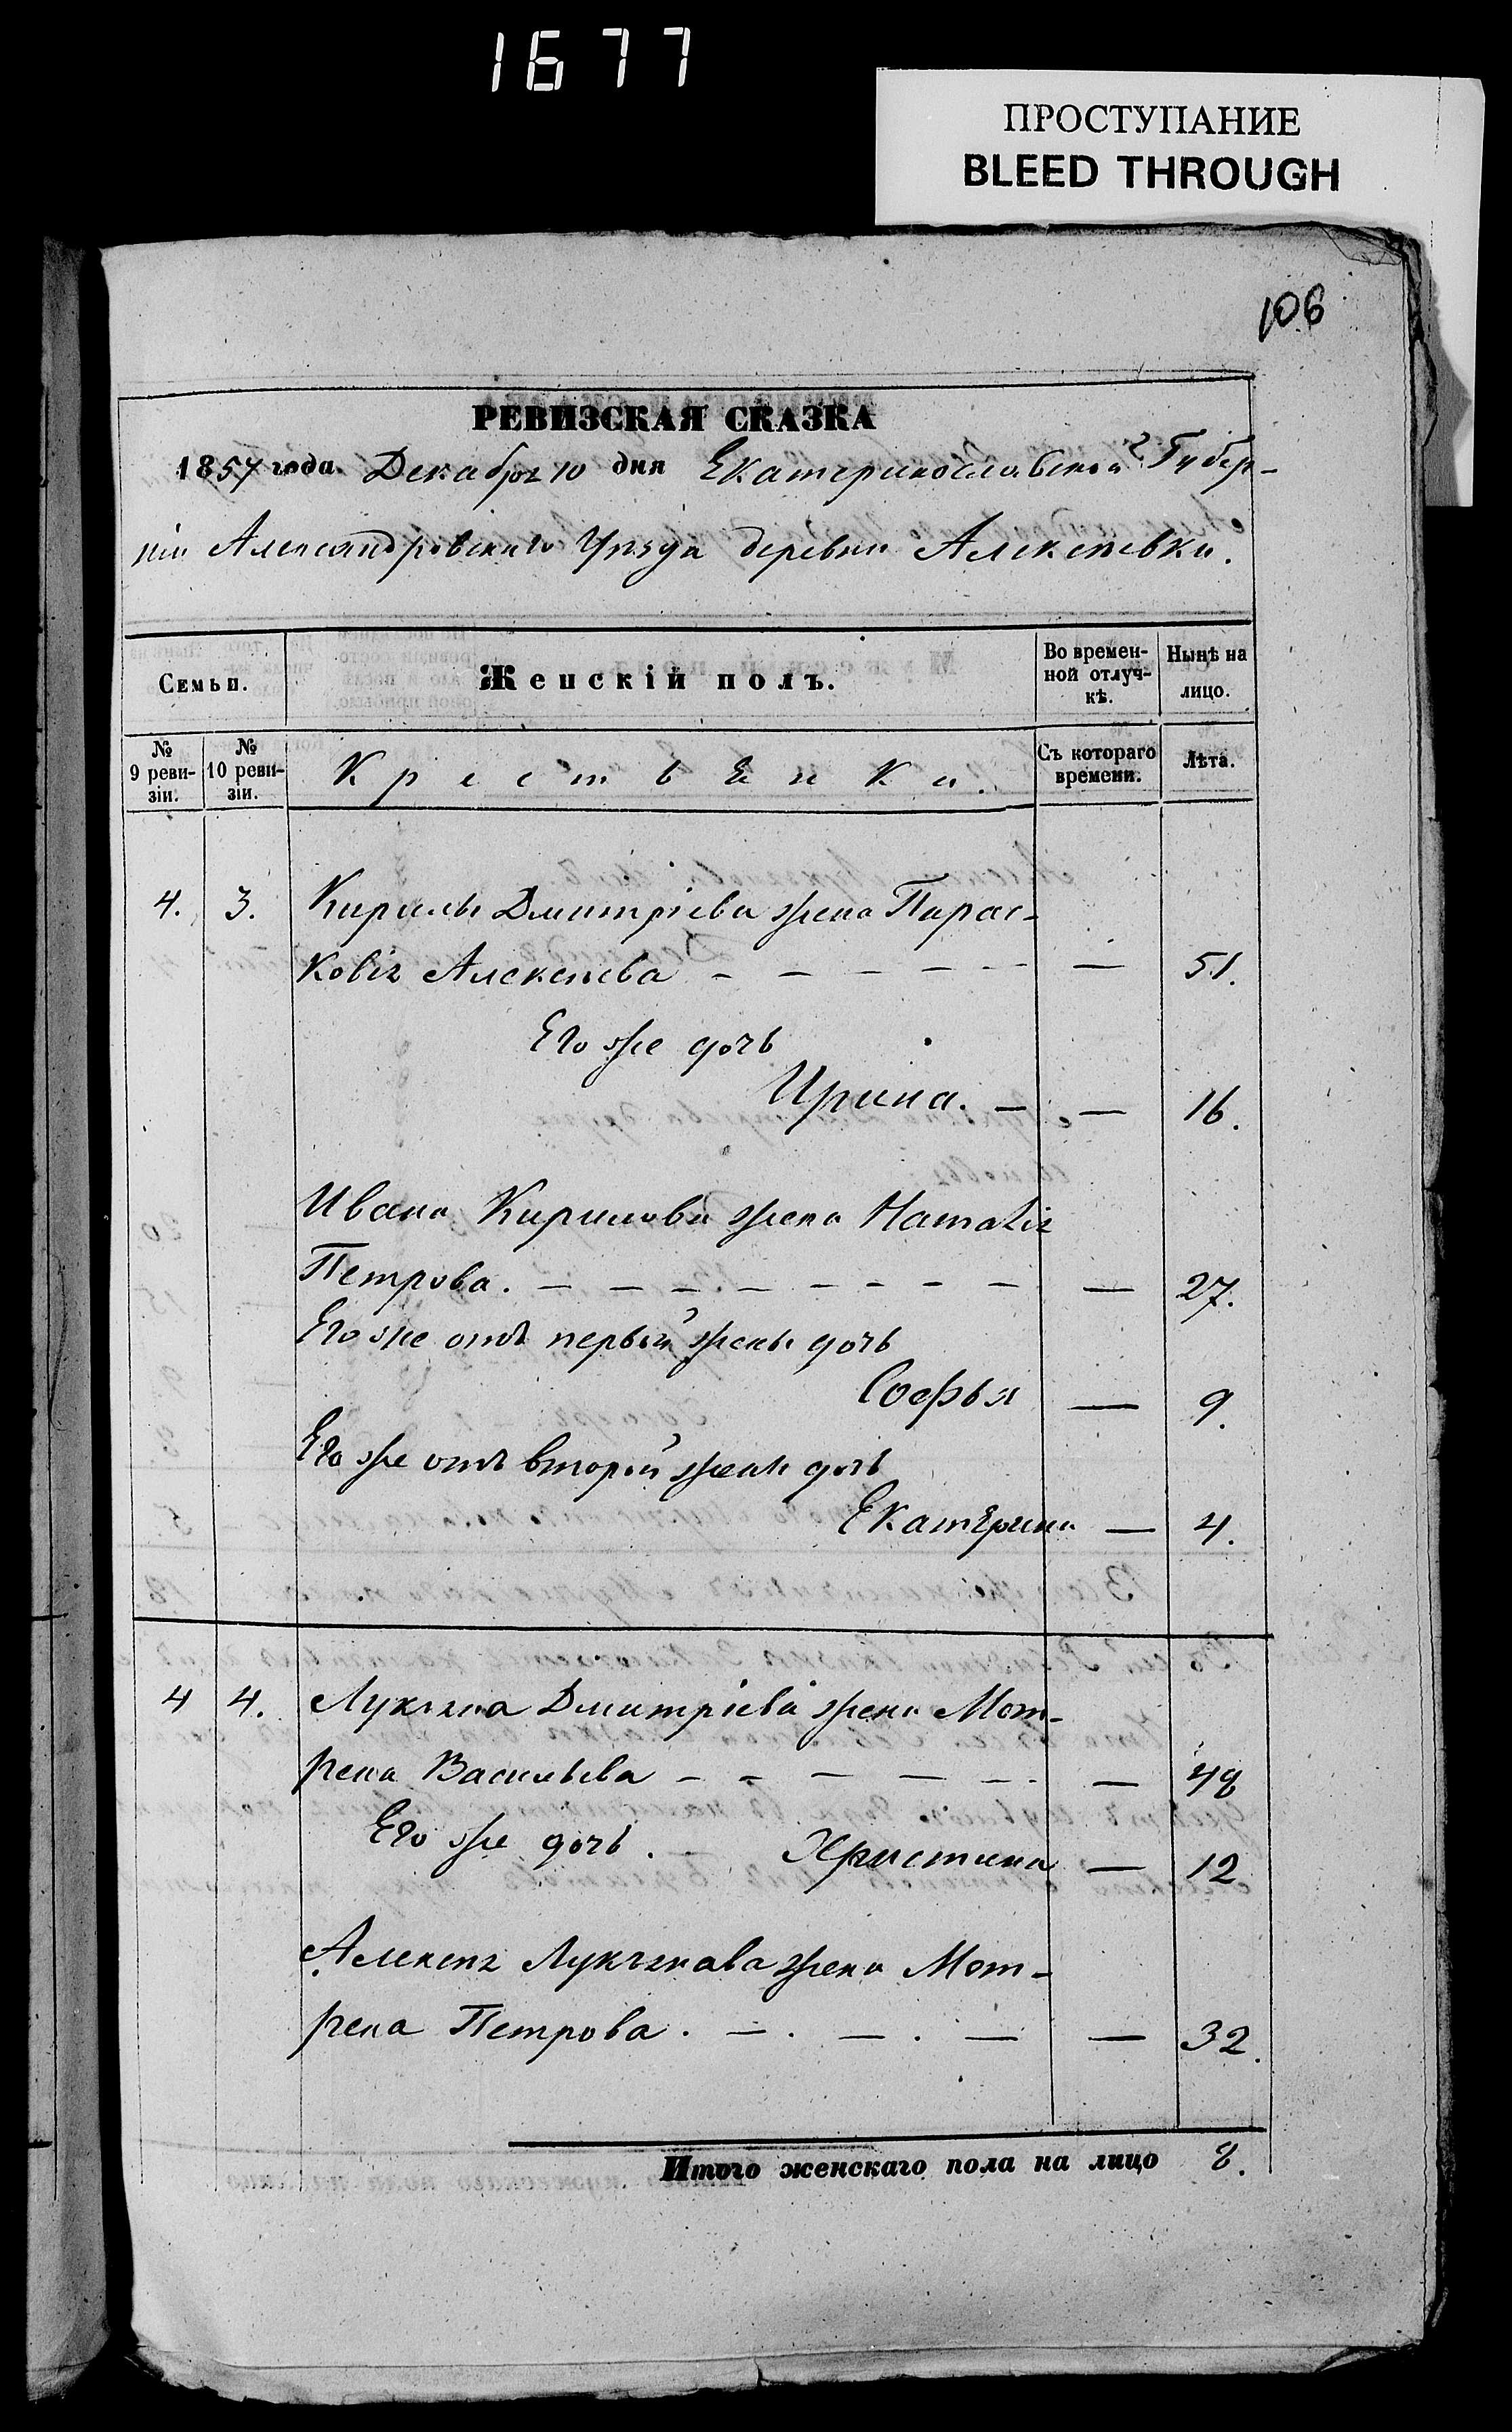 1677
ПРОСТУПАНИЕ
BLEED THROUGH
106
РЕВИЗСКАЯ СКАЗКА
1857 года Декабря 10 дня Екатеринославской Губер-
ніи Александровскаго Уѣзда деревни Алексѣевки.
Семьи.
Женскій полъ.
Во времен-
ной отлуч-
кѣ.
Нынѣ на
лицо.
№
9 реви-
зіи.
№
10 реви-
зіи.
Крестьянки.
Съ котораго
времени.
Лѣта.
4. 3. Кирилы Дмитріева жена Парас-
ковія Алексѣева — — — — — — 51.
Его же дочь
Ирина. — — 16.
Ивана Кирилова жена Наталія
Петрова. — — — — — — — — — 27.
Его же отъ первой жены дочь
Софья — 9.
Его же отъ второй жены дочь
Екатерина — 4.
4 4. Лукьяна Дмитріева жена Мот-
рена Васильева — — — — — — 48
Его же дочь. — Христина — 12
Алексѣя Лукьянова жена Мот-
рена Петрова. — . — . — — 32.
Итого женскаго пола на лицо 8.